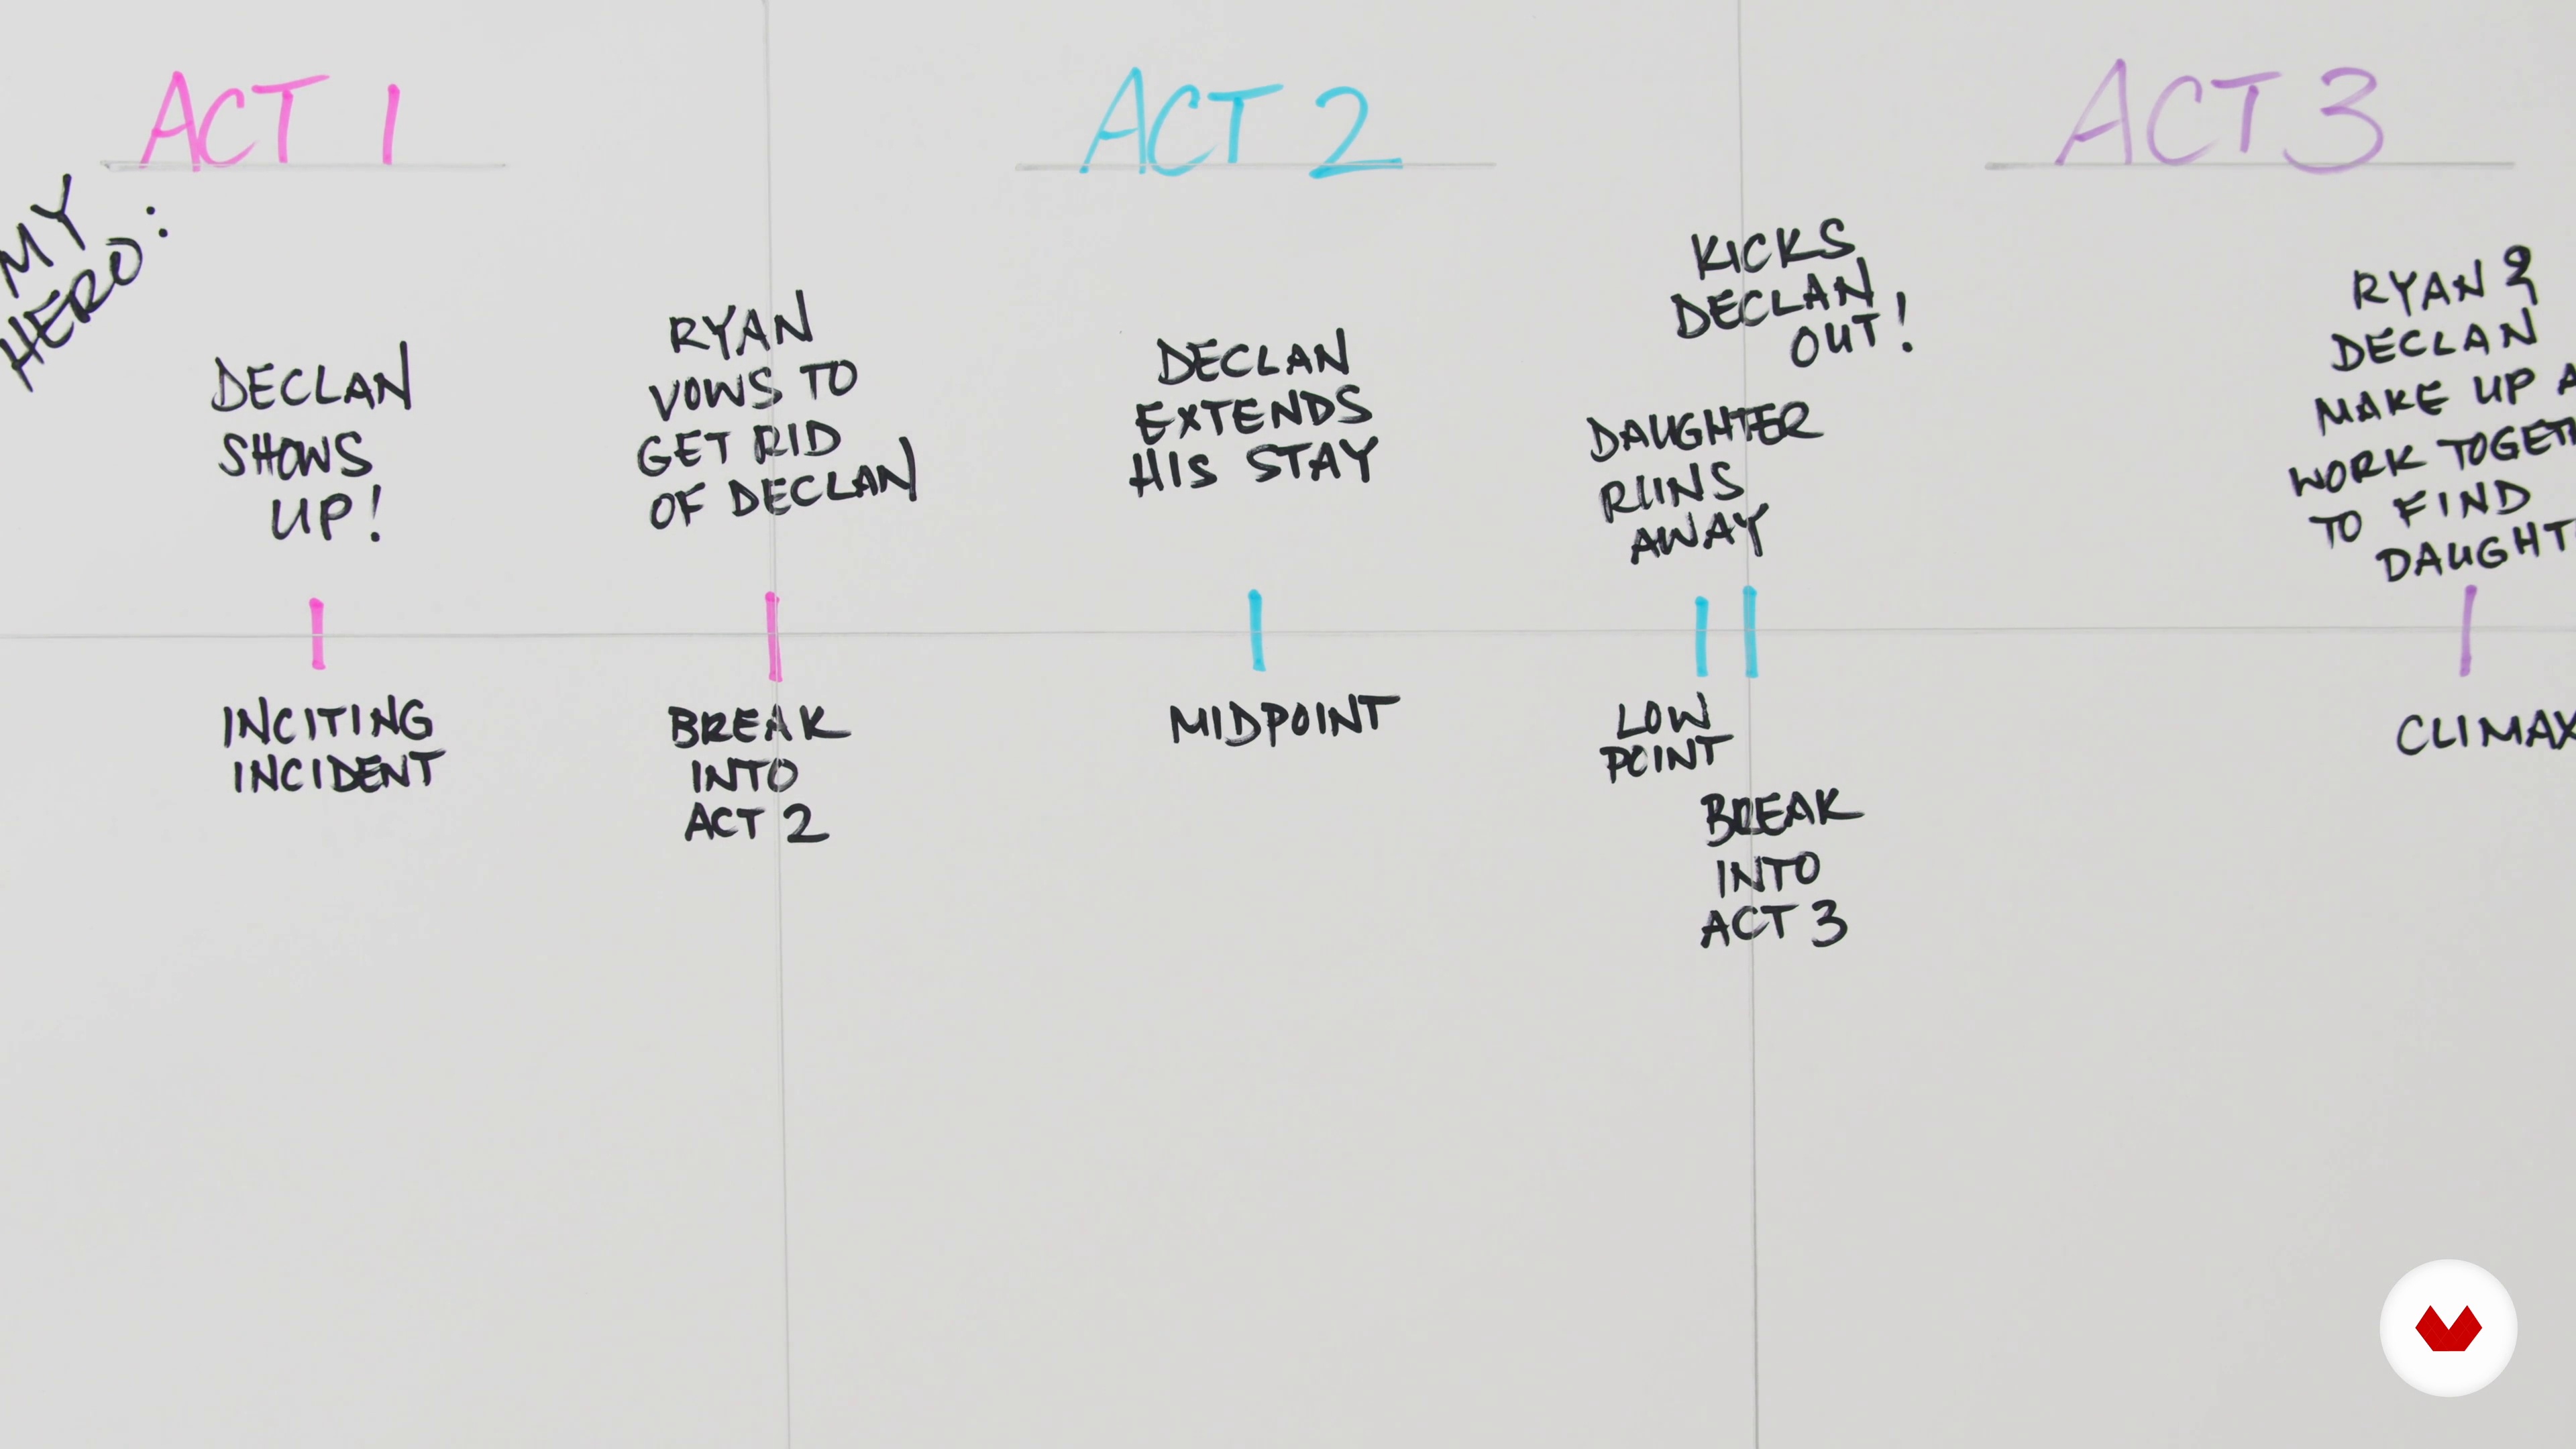 ACT 1
ACT 2
ACT 3
MY
HERO:
DECLAN
SHOWS
UP!
RYAN
VOWS TO
GET RID
OF DECLAN
DECLAN
EXTENDS
HIS STAY
DAUGHTER
RUNS
AWAY
KICKS
DECLAN
OUT!
RYAN &
DECLAN
MAKE UP A
WORK TOGETH
TO FIND
DAUGHT
INCITING
INCIDENT
BREAK
INTO
ACT 2
MIDPOINT
LOW
POINT
BREAK
INTO
ACT 3
CLIMAX